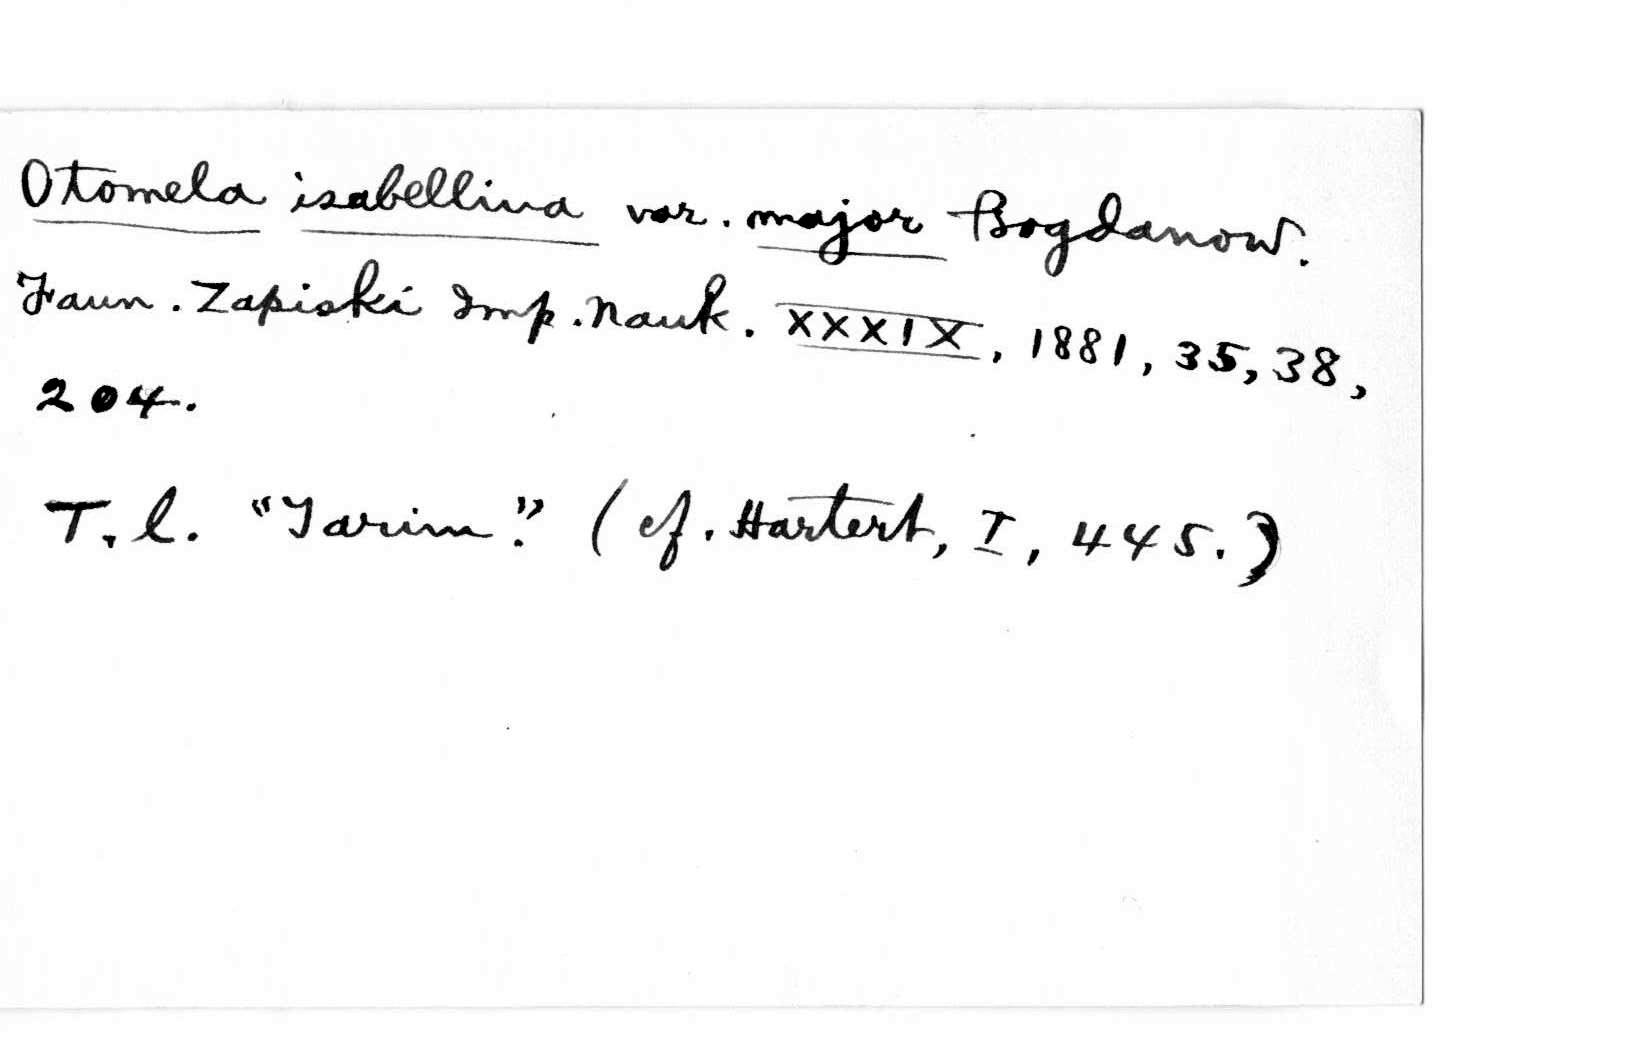 Otomela isabellina var. major Bogdanow.
Faun. Zapiski Imp. Nauk. XXXIX, 1881, 35, 38,
204.
T. l. "Tarim". (cf. Hartert, I, 445.)